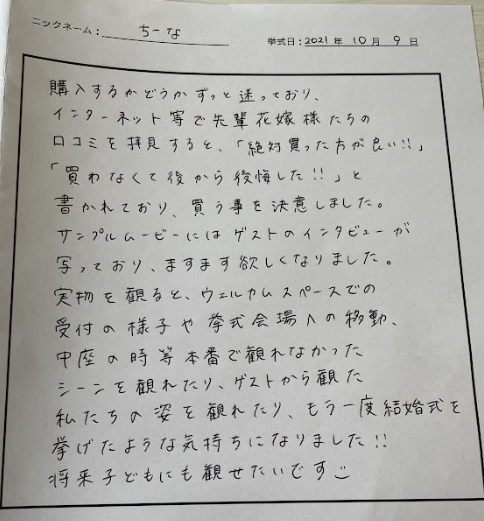 ニックネーム： ちーな
挙式日：2021 年 10 月 9 日
購入するかどうかずっと迷っており、
インターネット等で先輩花嫁様たちの
口コミを拝見すると、「絶対買った方が良い!!」
「買わなくて後から後悔した!!」と
書かれており、買う事を決意しました。
サンプルムービーにはゲストのインタビューが
写っており、ますます欲しくなりました。
実物を観ると、ウェルカムスペースでの
受付の様子や挙式会場への移動、
中座の時等本番で観れなかった
シーンを観れたり、ゲストから観た
私たちの姿を観れたり、もう一度結婚式を
挙げたような気持ちになりました!!
将来子どもにも観せたいです